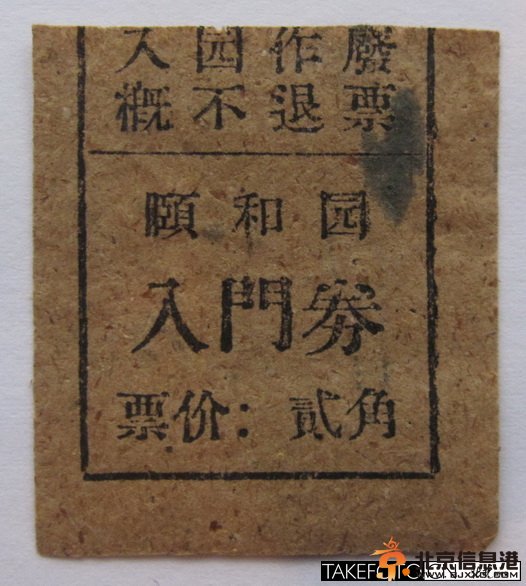 入园作廢
概不退票
頤和园
入門券
票价：貳角
北京信息港
WWW.BJXXG.COM